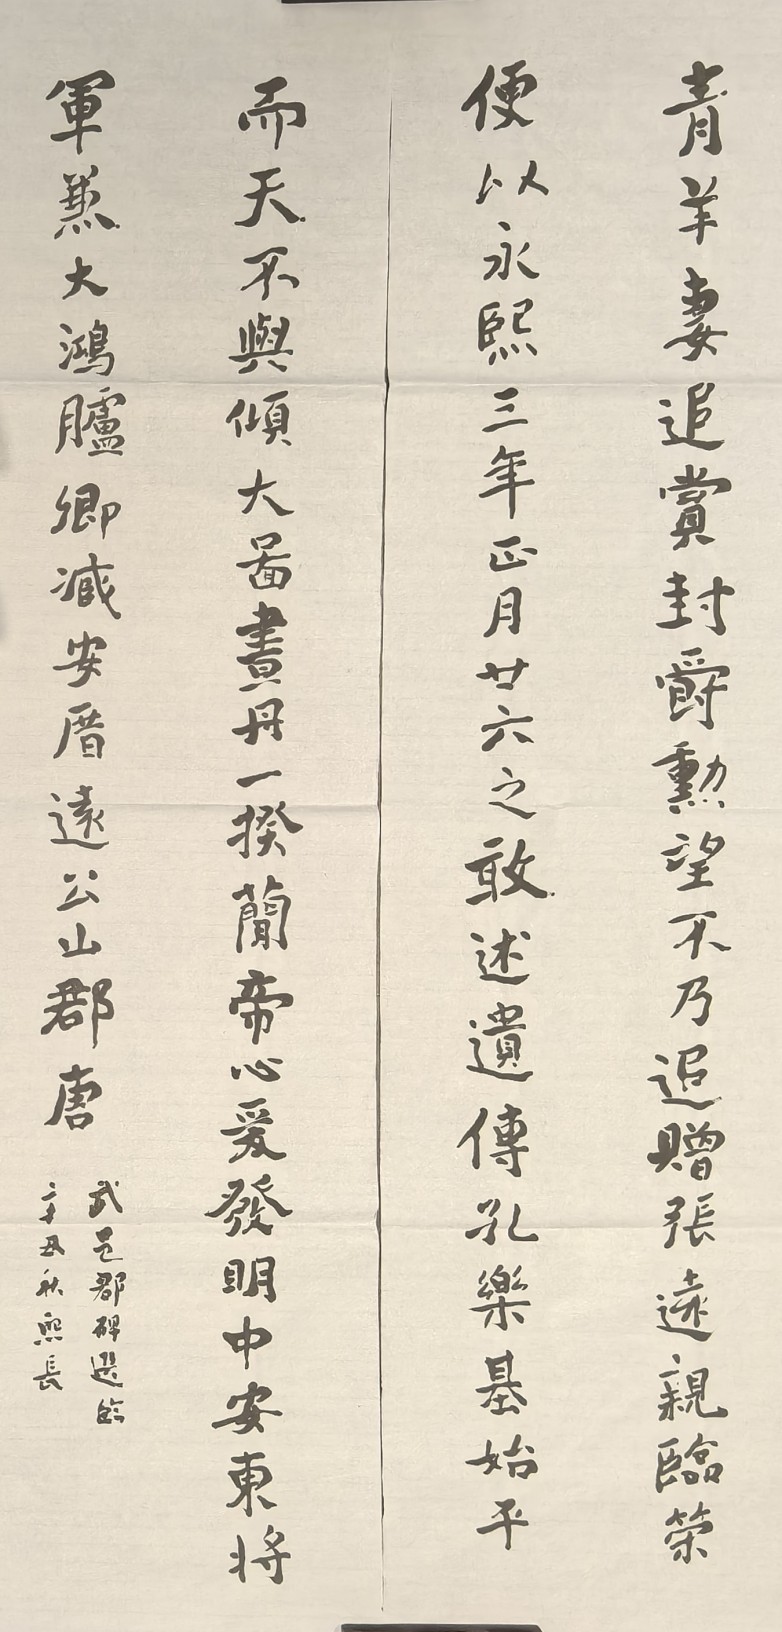 青羊妻追賞封爵勲望不乃追贈張遠親臨榮
便以永熙三年正月廿六之敢述遺傳孔樂基始平
而天不與傾大啚晝丹一揆蕳帝心爰發明中安東将
軍兼大鴻臚卿減安厝遠公山郡唐
武邑郡碑選臨
辛丑秋熙長